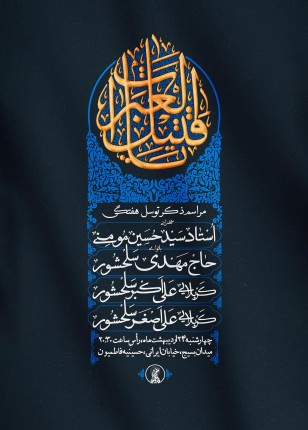 یا قتیل العبرات
مراسم ذکر توسل هفتگی
سخنرانی
استاد سید حسین مومنی
با نوای
حاج مهدی سلحشور
کربلایی علی اکبر سلحشور
کربلایی علی اصغر سلحشور
چهارشنبه ۲۴ اردیبهشت ماه، رأس ساعت ۲۰:۳۰
میدان بسیج، خیابان ایرانی، حسینیه فاطمیون